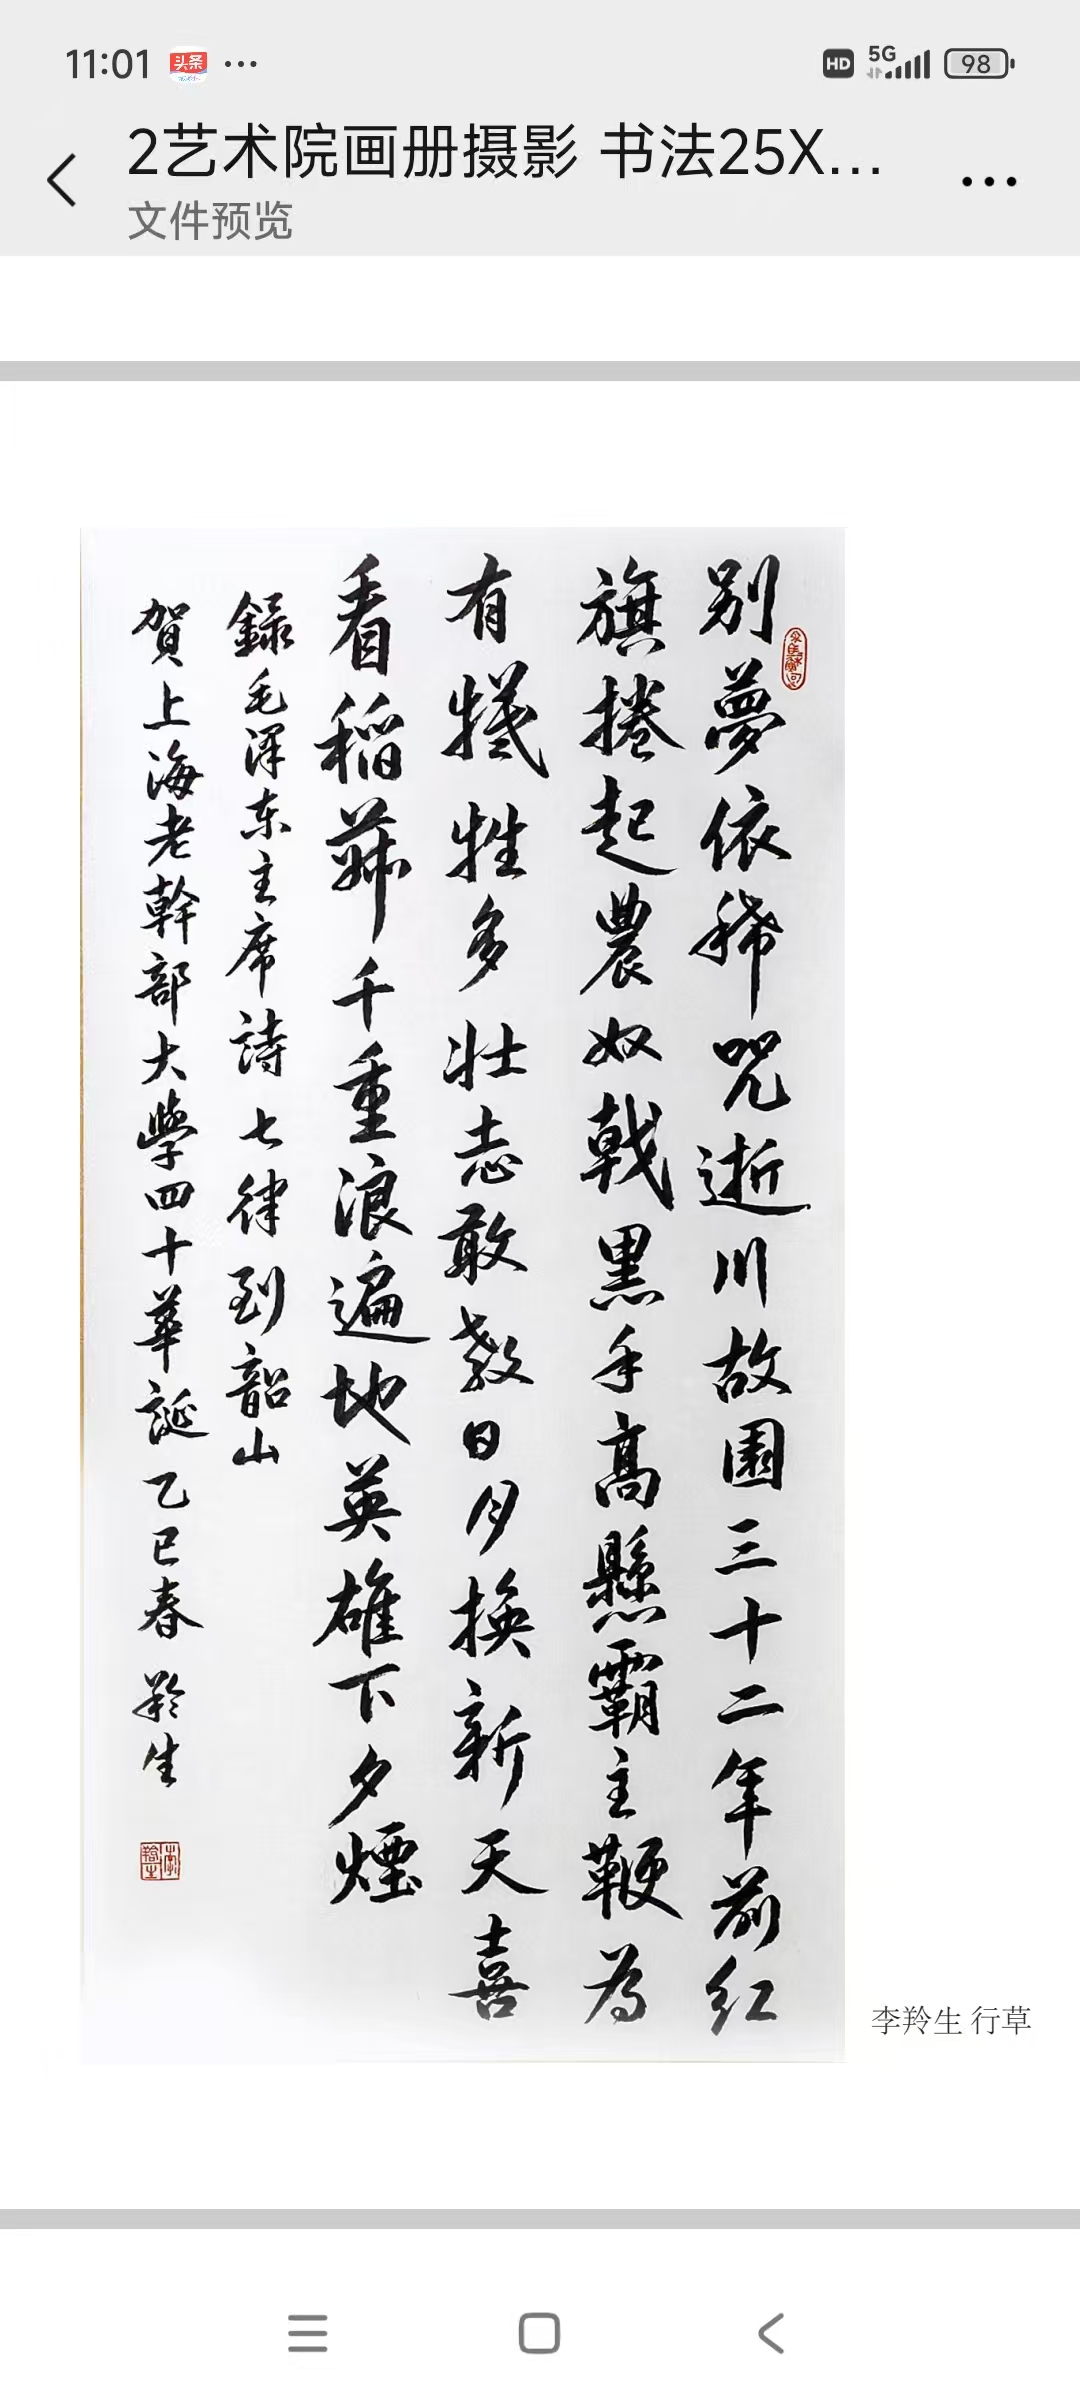 11:01 头条 HD 5G 98
2艺术院画册摄影 书法25X...
文件预览
别夢依稀咒逝川故園三十二年前红
旗捲起農奴戟黑手高懸霸主鞭为
有犠牲多壮志敢教日月换新天喜
看稻菽千重浪遍地英雄下夕煙
録毛泽东主席詩七律到韶山
賀上海老幹部大學四十華誕乙巳春羚生
李羚生 行草